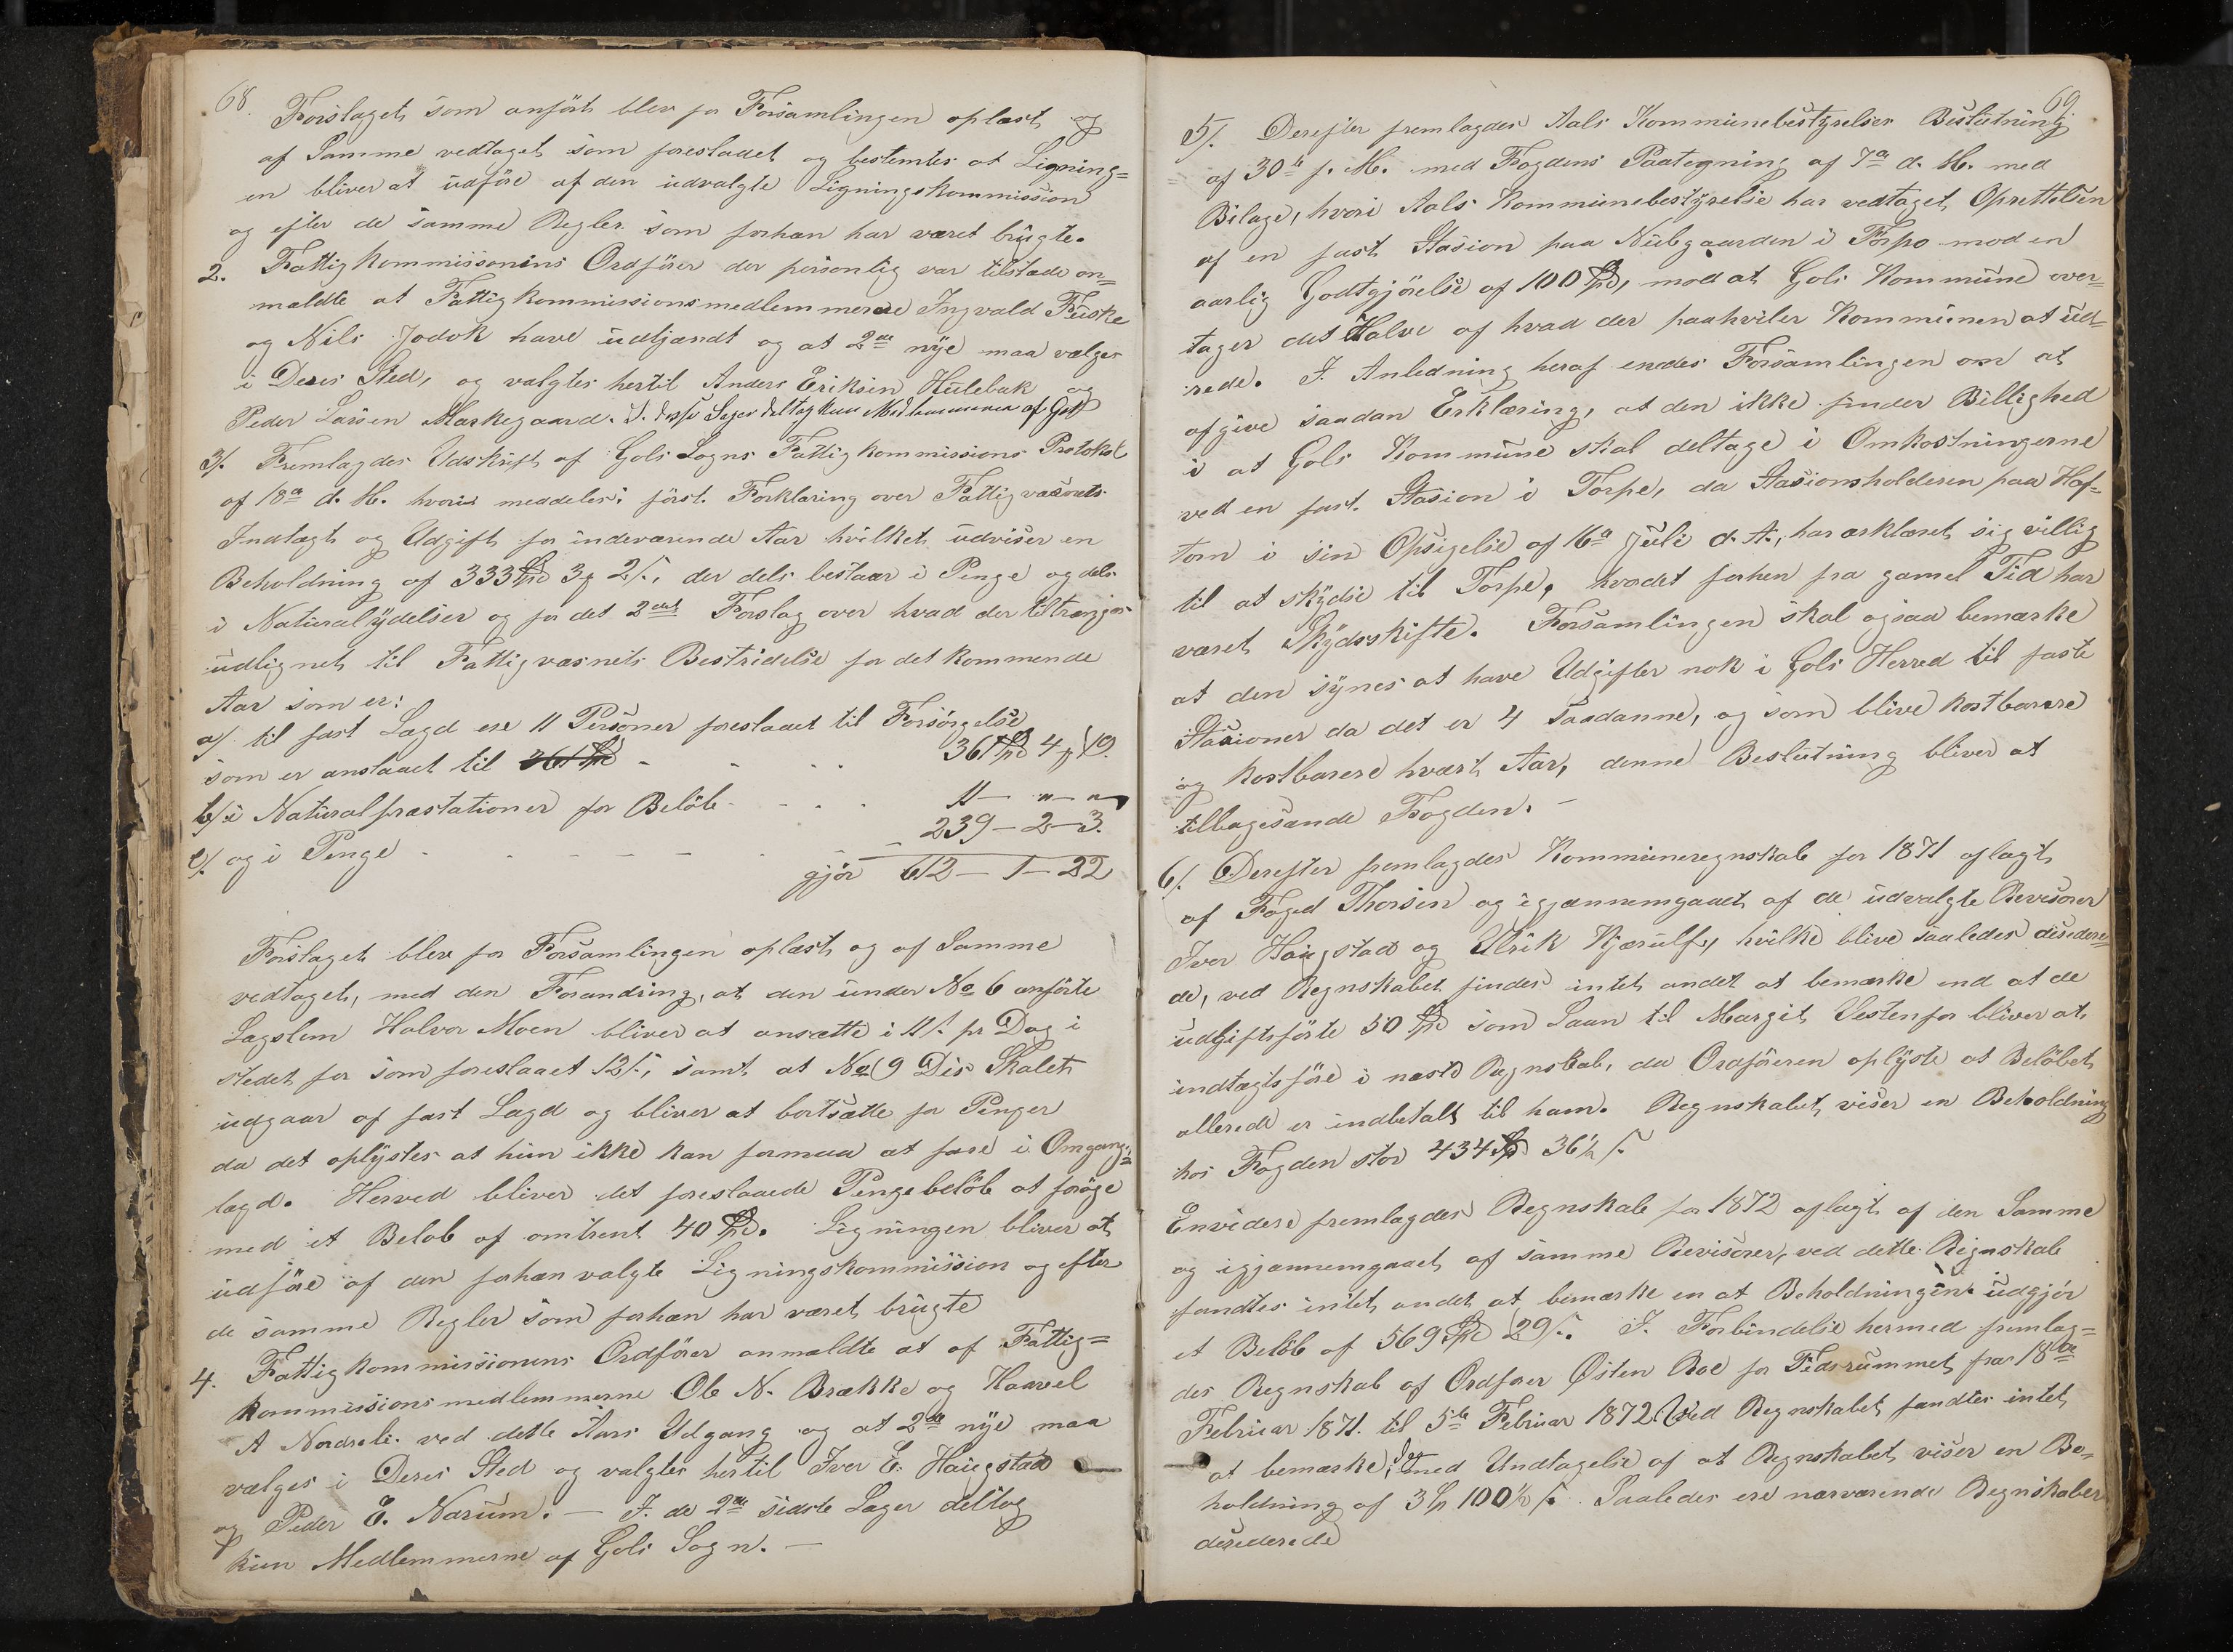 68.
Forslaget som anført blev for Forsamlingen oplæst og
af Samme vedtaget som foreslaaet og bestemtes at Ligning=
en bliver at udføre af den udvalgte Ligningskommission
og efter de samme Regler som forhæn har været brugte.
2. Fattigkommissonens Ordfører der personlig var tilstæde an=
mældte at Fattigkommissionsmedlemmerne Ingvald Fuske
og Nils Jodok have udtjændt og at 2de nye maa vælges
i Deres Sted, og valgtes hertil Anders Eriksen Hulebak og
Peder Larsen Markegaard. I disse Sager deltog kun Medlemmerne af Gol
3/. Fremlagdes Udskrift af Gols Sogns Fattigkommissions Protokol
af 18de d. M. hvori meddeles: først. Forklaring over Fattigvæsnets
Indtægt og Udgift for indeværende Aar hvilket udviser en
Beholdning af 333 Spd 3 ꝑ 2 s, der dels bestaar i Penge og dels
i Naturalydelser og for det 2det Forslag over hvad der tiltrænges
udlignet til Fattigvæsnets Bestridelse for det kommende
Aar som er:
a/ til fast Lægd ere 11 Personer foreslaaet til Forsørgelse
som er anslaaet til 361 Spd - - - - 361 Spd 4 ꝑ 19.
b/ i Naturalpræstationer for Beløb - - - - 11 — " — "
c/. og i Penge - - - - - - - 239 — 2 — 3.
gjør 612 — 1 — 22
Forslaget blev for Forsamlingen oplæst og af Samme
vedtaget, med den Forandring, at den under No 6 anførte
Lægslem Halvor Moen bliver at ansætte i 11 s. pr Dag i
stedet for som foreslaaet 12 s.; samt at No 9 Dis Skalet
udgaar af fast Lægd og bliver at bortsætte for Penger
da det oplystes at hun ikke kan formaa at fare i Omgangs=
lægd. Herved bliver det foreslaaede Pengebeløb at forøge
med et Beløb af omtrent 40 Spd. Ligningen bliver at
udføre af den forhæn valgte Ligningskommission og efter
de samme Regler som forhæn har været brugte
4. Fattigkommissionens Ordfører anmældte at af Fattig=
kommissionsmedlemmerne Ole N. Brække og Haavel
A Nordreli ved dette Aars Udgang og at 2de nye maa
vælges i Deres Sted og valgtes hertil Iver E. Haugstad
og Peder E. Narum. — I de 2de sidste Sager deltog
kun Medlemmerne af Gols Sogn. —
69.
5/. Derefter fremlagdes Aals Kommunebestyrelses Beslutning
af 30te f. M. med Fogdens Paategning af 7de d. M. med
Bilage, hvori Aals Kommunebestyrelse har vedtaget Oprettelsen
af en fast Stasion paa Nubgaarden i Torpo mod en
aarlig Godtgjørelse af 100 Spd, mod at Gols Kommune over=
tager det Halve af hvad der paahviler Kommunen at ud=
rede. I Anledning heraf enedes Forsamlingen om at
afgive saadan Erklæring, at den ikke finder Billighed
i at Gols Kommune skal deltage i Omkostningerne
ved en fast Stasion i Torpe, da Stasionsholderen paa Haf=
torn i sin Opsigelse af 16de Juli d. A., har ærklæret sig villig
til at skydse til Torpe, hvordet forhen fra gamel Tid har
været Skydsskifte. Forsamlingen skal ogsaa bemærke
at den synes at have Udgifter nok i Gols Herred til faste
Stasioner da det er 4 Saadanne, og som blive kostbarere
og kostbarere hvært Aar, denne Beslutning bliver at
tilbagesænde Fogden. —
6/. Derefter fremlagdes Kommuneregnskab for 1871 aflagt
af Foged Thorsen og igjænnemgaaet af de udvalgte Revisorer
Iver Haugstad og Ulrik Kjærulf, hvilke blive saaledes desidere=
de, ved Regnskabet findes intet andet at bemærke end at de
udgiftsførte 50 Spd som Laan til Margit Vestenfor bliver at
indtægtsføre i næste Regnskab, da Ordføreren oplyste at Beløbet
allerede er indbetalt til ham. Regnskabet viser en Beholdning
hos Fogden stor 434 Spd 36½ s.
Envidere fremlagdes Regnskab for 1872 aflagt af den Samme
og igjænnemgaaet af samme Revisorer, ved dette Regnskab
fandtes intet andet at bemærke en at Beholdningen udgjør
et Beløb af 569 Spd 29 s. I Forbindelse hermed fremlag=
des Regnskab af Ordfører Østen Roe for Tidsrummet fra 18de
Februar 1871. til 5te Februar 1872. Ved Regnskabet fandtes intet
at bemærke, med Undtagelse af at Regnskabet viser en Be=
holdning af 3 Sp 100½ s. Saaledes ere nærværende Regnskaber
desiderede